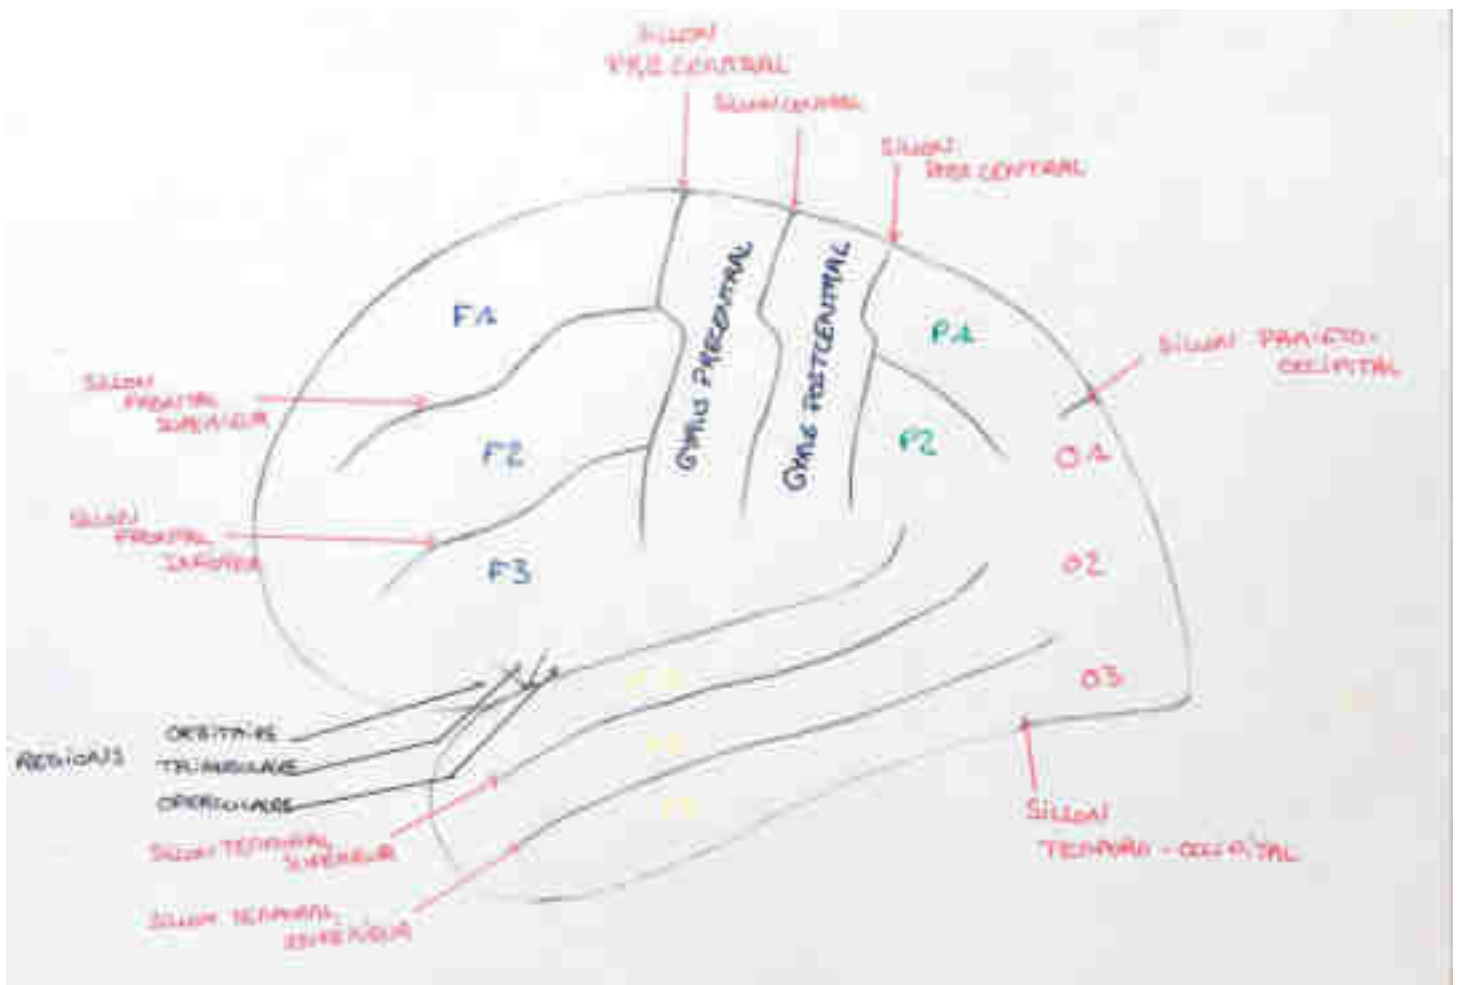 SILLON
PRE CENTRAL
SILLON CENTRAL
SILLON
POST CENTRAL
GYRUS PRECENTRAL
GYRUS POSTCENTRAL
F1
P1
SILLON PARIETO-
OCCIPITAL
SILLON
FRONTAL
SUPERIEUR
F2
P2
O1
SILLON
FRONTAL
INFERIEUR
F3
O2
O3
REGIONS
ORBITAIRE
TRIANGULAIRE
OPERCULAIRE
SILLON TEMPORAL
SUPERIEUR
SILLON
TEMPORO-OCCIPITAL
SILLON TEMPORAL
INFERIEUR